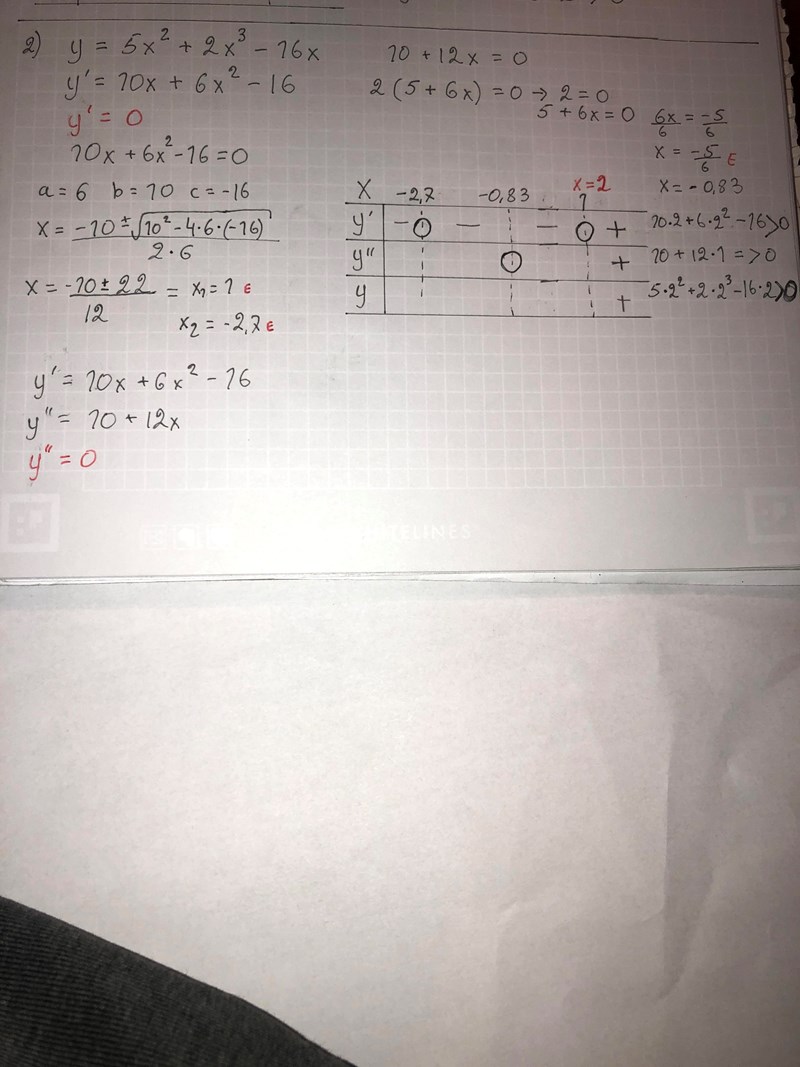 2) y = 5x² + 2x³ - 16x
y' = 10x + 6x² - 16
y' = 0
10x + 6x² - 16 = 0
a = 6 b = 10 c = -16
x = -10 ± √10² - 4·6·(-16) / 2·6
x = -10 ± 22 / 12 = x₁ = 1 ∈
x₂ = -2,7 ∈
y' = 10x + 6x² - 16
y'' = 10 + 12x
y'' = 0
10 + 12x = 0
2 (5 + 6x) = 0 → 2 = 0
5 + 6x = 0
6x/6 = -5/6
x = -5/6 ∈
x = -0,83
x=2
x -2,7 -0,83 1
y' - 0 - - 0 + 10·2+6·2²-16>0
y'' 0 + 10 + 12·1 = >0
y + 5·2²+2·2³-16·2>0
WHITELINES